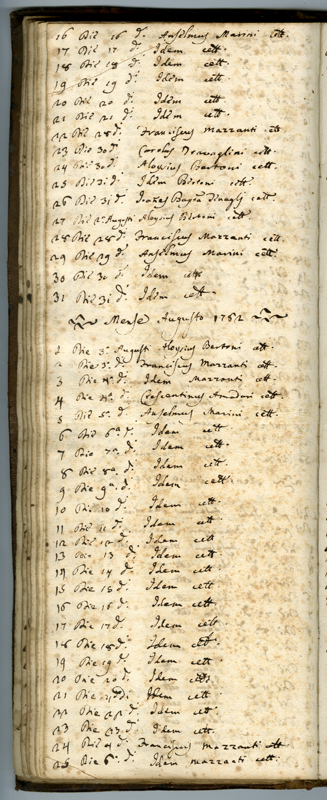 16 Die 16 d.º Anselmus Marini cett.
17 Die 17 d.º Idem cett.
18 Die 18 d.º Idem cett.
19 Die 19 d.º Idem cett.
20 Die 20 d.º Idem cett.
21 Die 21 d.º Idem cett.
22 Die 28 d.º Franciscus Mazzanti cett.
23 Die 30 d.º Carolus cett.
24 Die 30 d.º Aloysius Bertoni cett.
25 Die 31 d.º Idem Bertoni cett.
26 Die 31 d.º cett.
27 Die 2.ª Augusti Aloysius Bertoni cett.
28 Die 28 d.º Franciscus Mazzanti cett.
29 Die 29 d.º Anselmus Marini cett.
30 Die 30 d.º Idem cett.
31 Die 31 d.º Idem cett.
Mense Augusto 1752
1 Die 3.ª Augusti Aloysius Bertoni cett.
2 Die 3.ª d.º Franciscus Mazzanti cett.
3 Die 4.ª d.º Idem Mazzanti cett.
4 Die 4.ª d.º cett.
5 Die 5.ª d.º Anselmus Marini cett.
6 Die 6.ª d.º Idem cett.
7 Die 7.ª d.º Idem cett.
8 Die 8.ª d.º Idem cett.
9 Die 9.ª d.º Idem cett.
10 Die 10 d.º Idem cett.
11 Die 11 d.º Idem cett.
12 Die 12 d.º Idem cett.
13 Die 13 d.º Idem cett.
14 Die 14 d.º Idem cett.
15 Die 15 d.º Idem cett.
16 Die 16 d.º Idem cett.
17 Die 17 d.º Idem cett.
18 Die 18 d.º Idem cett.
19 Die 19 d.º Idem cett.
20 Die 20 d.º Idem cett.
21 Die 21 d.º Idem cett.
22 Die 22 d.º Idem cett.
23 Die 23 d.º Idem cett.
24 Die d.º Franciscus Mazzanti cett.
25 Die 6.ª d.º Idem Mazzanti cett.